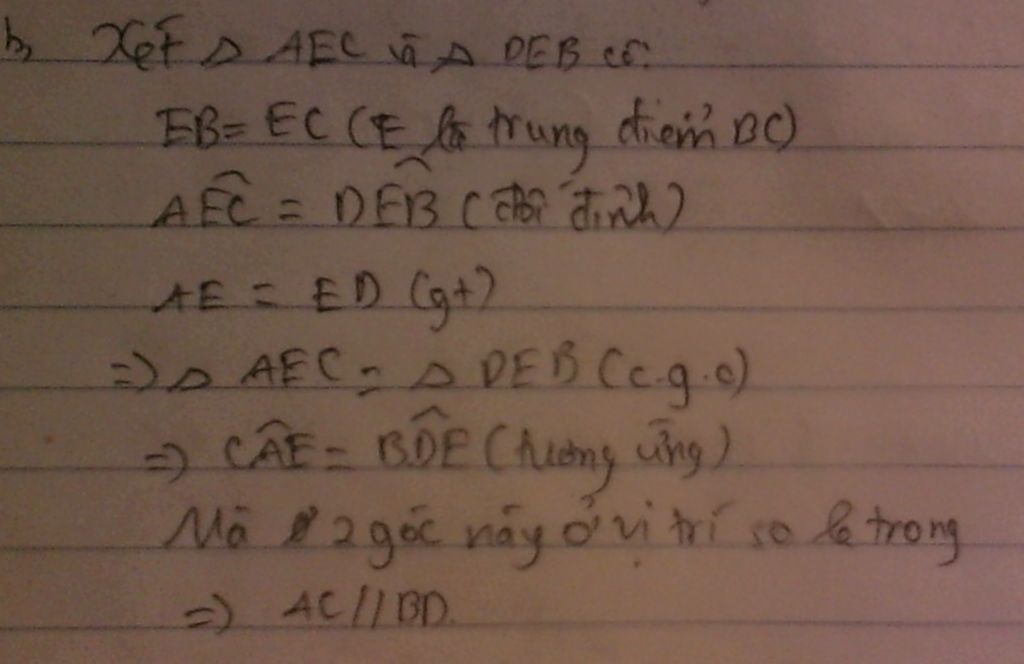 b, Xét Δ AEC và Δ DEB có:
EB = EC (E là trung điểm BC)
AÊC = DÊB (đối đỉnh)
AE = ED (gt)
=> Δ AEC = Δ DEB (c.g.c)
=> CÂE = BD̂E (tương ứng)
Mà 2 góc này ở vị trí so le trong
=> AC // BD.